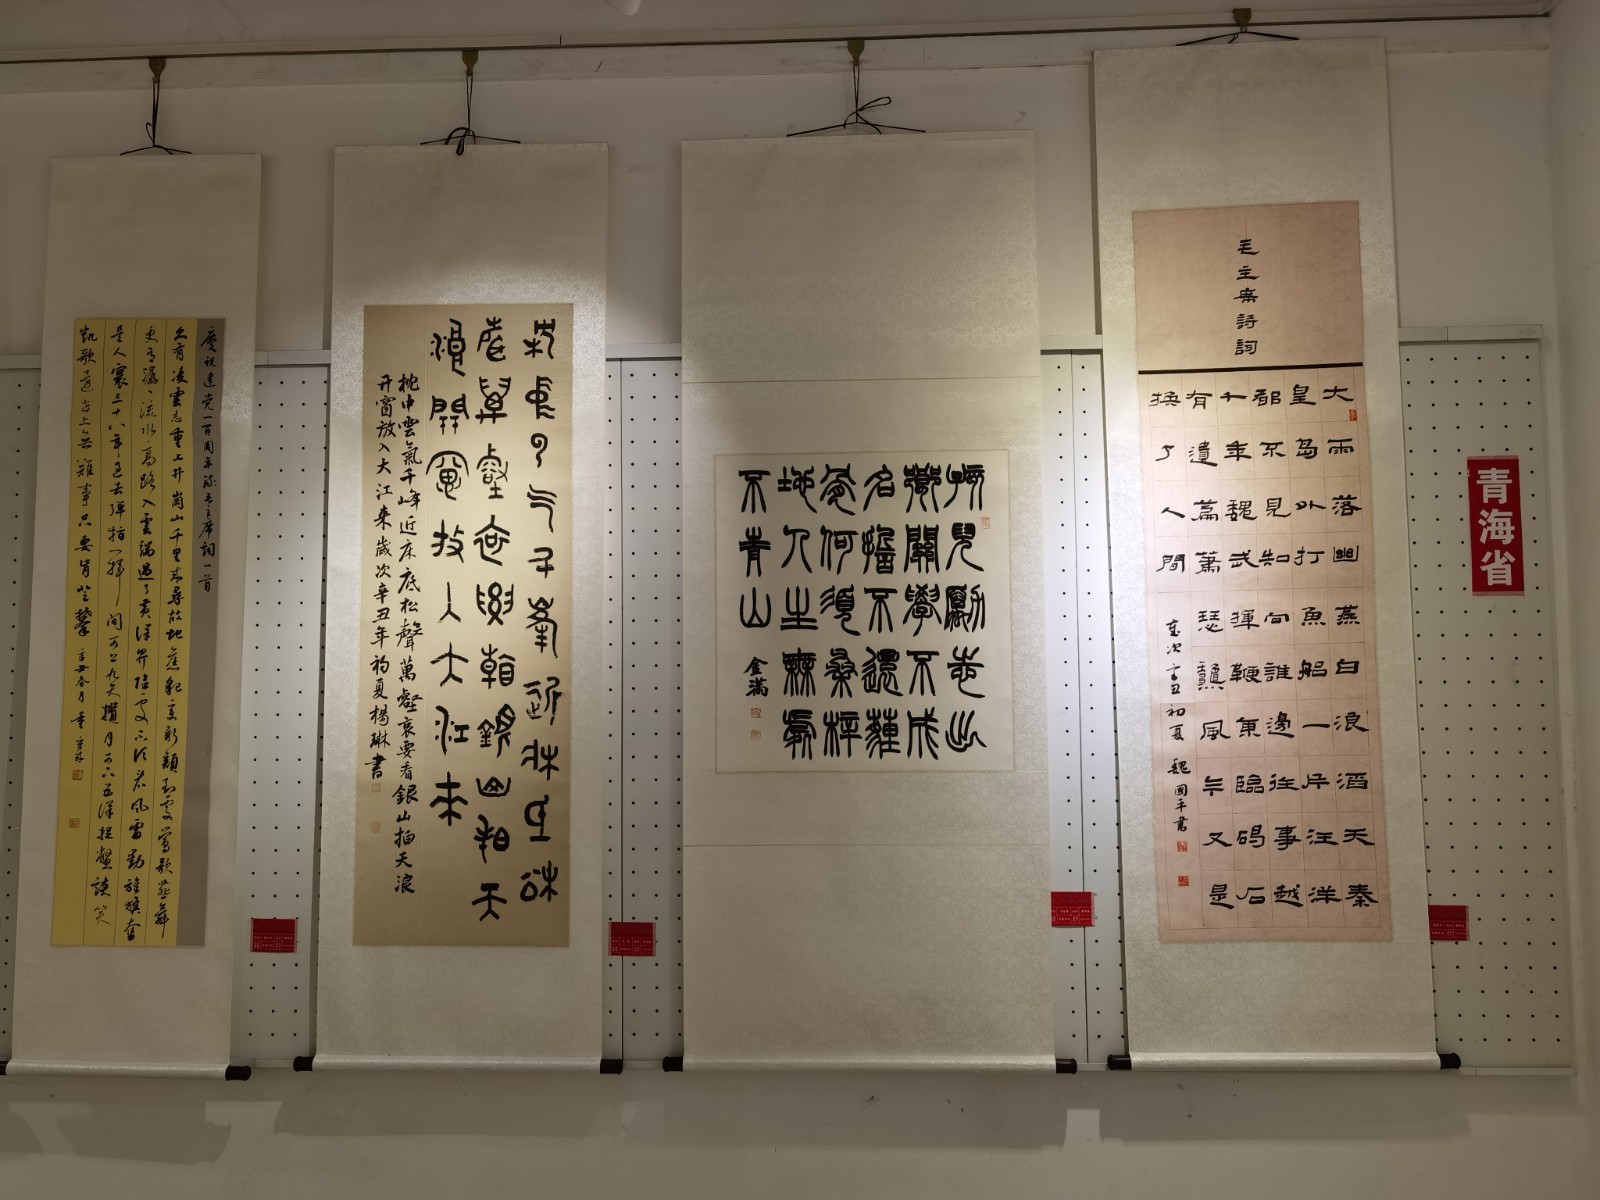 毛主席詩詞
大雨落幽燕白浪滔天秦
皇島外打魚船一片汪洋
都不見知向誰邊往事越
千年魏武揮鞭東臨碣石
有遺篇蕭瑟秋風今又是
換了人間
歲次辛丑初夏 魏國平書
孩兒勵志出
鄉關學不成
名誓不還薶
骨何須桑梓
地人生無處
不青山 金滿
枕中云气千峯近牀氐松
聲萬壑哀要看銀山拍天
浪開窗放入大江來
枕中雲氣千峰近床底松聲萬壑哀要看銀山拍天浪
开窗放入大江来歲次辛丑年初夏楊琳書
慶祝建党一百周年録毛主席詞一首
久有凌雲志重上井崗山千里来尋故地舊貌変新顔到處鶯歌燕舞
更有潺潺流水高路入雲端過了黄洋界險處不須看風雷動旌旗奮
是人寰三十八年過去弹指一揮間可上九天攬月可下五洋捉鱉談笑
凱歌還世上無難事只要肯登攀 辛丑春月
青海省